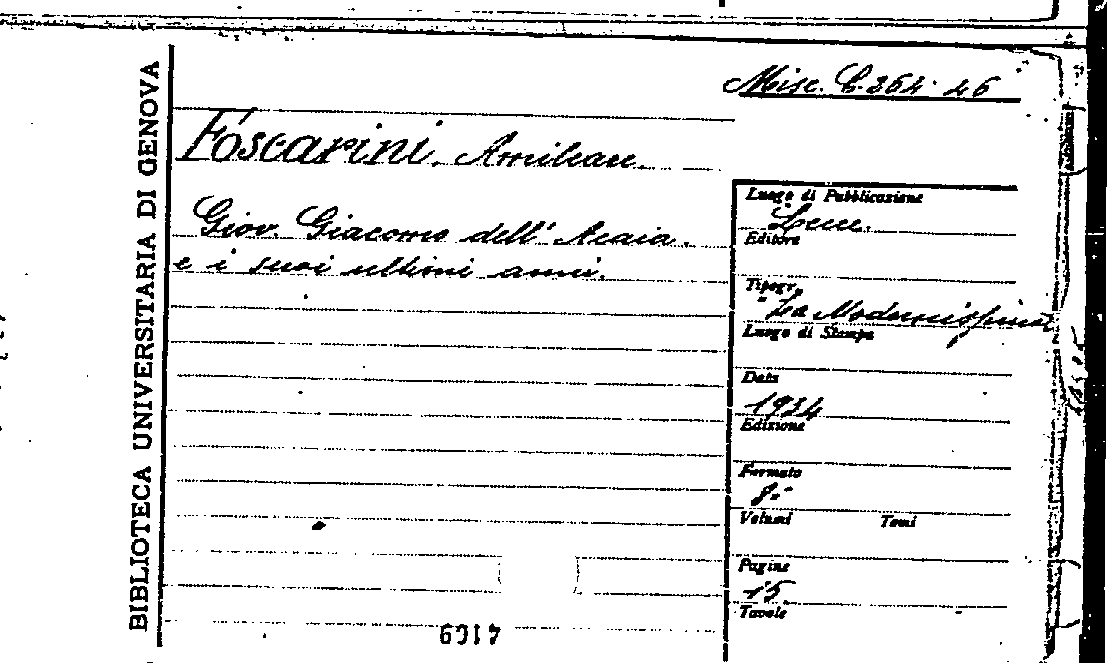 BIBLIOTECA UNIVERSITARIA DI GENOVA
Misc. C. 364. 46
Foscarini. Amilcare.
Giov. Giacomo dell'Acaia.
e i suoi ultimi anni.
Luogo di Pubblicazione
Lecce.
Editore
Tipogr.
"La Modernissima
Luogo di Stampa
Data
1934
Edizione
Formato
8º
Volumi Tomi
Pagine
15.
Tavole